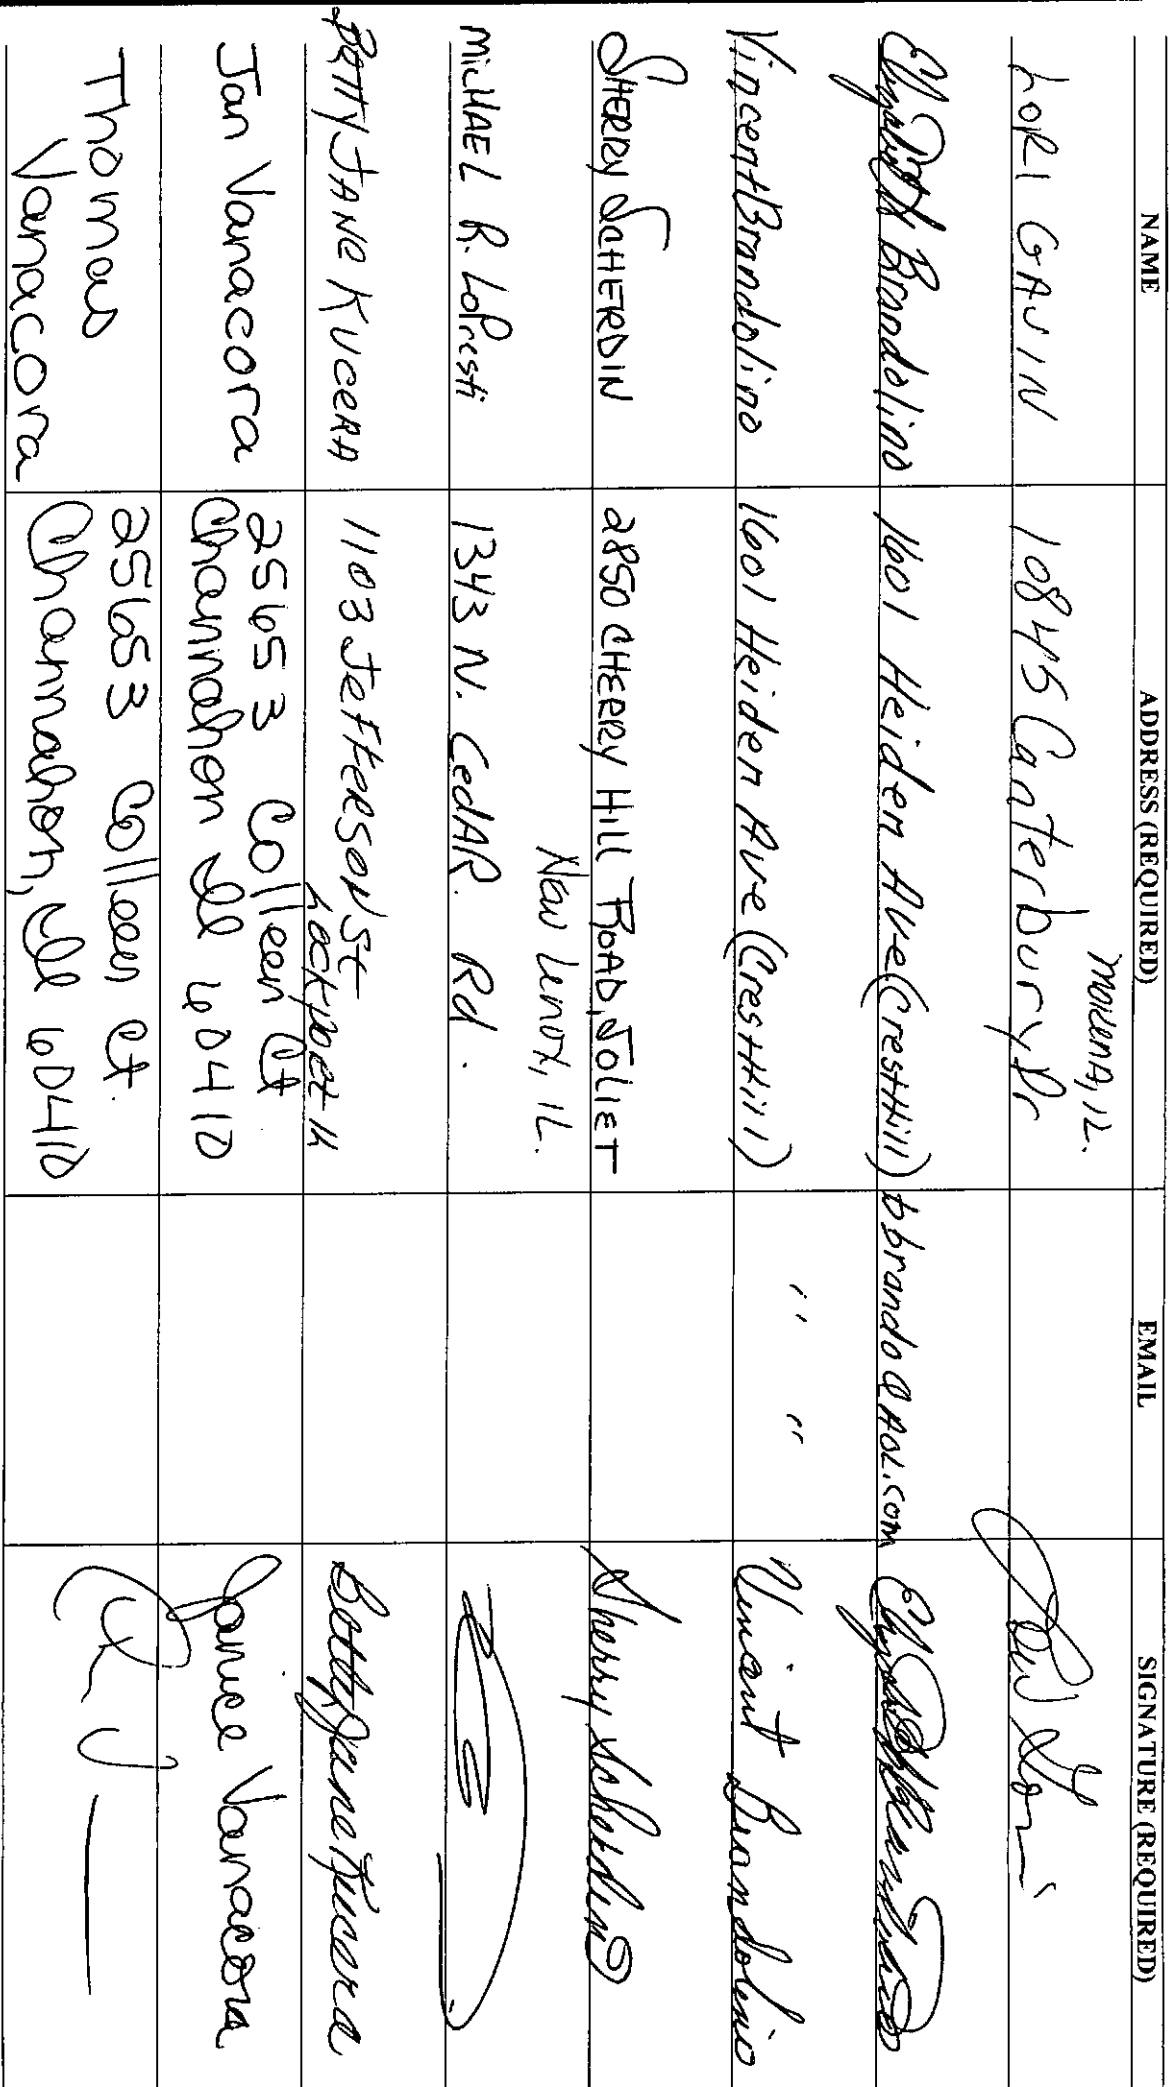 NAME ADDRESS (REQUIRED) EMAIL SIGNATURE (REQUIRED)
MOKENA, IL.
LORI GAVIN 10845 Canterbury Dr
Elizabeth Brandolino 1601 Heiden Ave (CrestHill) bbrando@AOL.com Elizabeth Brandolino
Vincent Brandolino 1601 Heiden Ave (CrestHill) " " Vincent Brandolino
SHERRY SCHERDIN 2850 CHERRY HILL ROAD, JOLIET Sherry Scherdin
New Lenox, IL.
MicHAEL R. LoPresti 1343 N. CedAR. Rd.
BETTY JANE KUCERA 1103 JeffERSON St Betty Jane Kucera
Lockport Il
25653 Colleen Ct
Jan Vanacora Channahon Ill 60410 Janice Vanacora
Thomas 25653 Colleen Ct.
Vanacora Channahon, Ill 60410